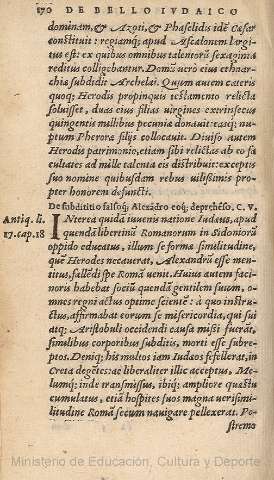 170 DE BELLO IVDAICO
dominam, & Azoti, & Phaselidis idē Cæsar
constituit: regiamq; apud Ascalonem largi
tus est: ex quibus omnibus talentorū sexaginta
reditus colligebantur. Domū uero eius ethnar-
chiæ subdidit Archelai. Quum autem cæteris
quoq; Herodis propinquis testamento relicta
soluisset, duas eius filias uirgines extrinsecus
quingentis millibus pecuniæ donauit: easq; nu
ptum Pheroræ filijs collocauit. Diuiso autem
Herodis patrimonio, etiam sibi relictas ab eo fa
cultates ad mille talenta eis distribuit: exceptis
suo nomine quibusdam rebus uilissimis pro-
pter honorem defuncti.
De subdititio falsoq; Alexādro eoq; deprehēso. C. V.
Antiq. li.
17. cap. 18
INterea quidā iuuenis natione Iudæus, apud
quendā libertinū Romanorum in Sidoniorū
oppido educatus, illum se formæ similitudine,
quē Herodes necauerat, Alexandrū esse men-
titus, fallēdi spe Romā uenit. Huius autem faci-
noris habebat sociū quendā gentilem suum, o-
mnes regni actus optime scientē: à quo instru-
ctus, affirmabat eorum se misericordia, qui sui
atq; Aristobuli occidendi causa missi fuerāt,
similibus corporibus subditis, morti esse subre-
ptos. Deniq; his multos iam Iudæos fefellerat, in
Creta degētes: ac liberaliter illic acceptus, Me-
lumq; inde transmissus, ibiq; ampliore quæstu
cumulatus, etiā hospites suos magna uerisimi-
litudine Romā secum nauigare pellexerat. Po-
stremo
Ministerio de Educación, Cultura y Deporte